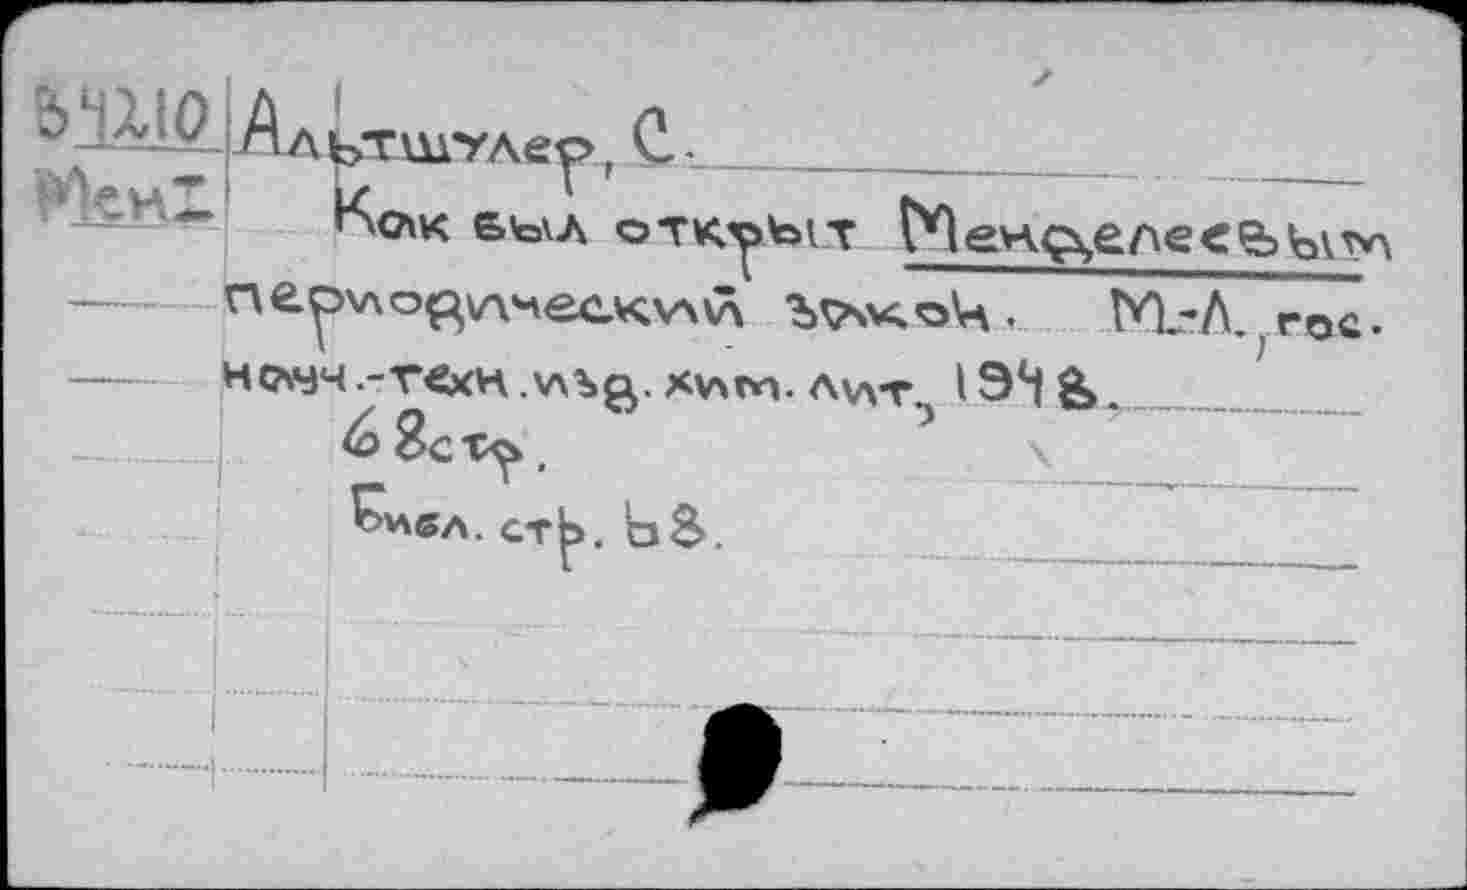 Альтшулер, С.
Как был открыт Менделеевым
периодический закон. М.-Л., гос.
науч.-техн.изд. хим. лит., 1948.
68 стр.
Библ. стр. 68.